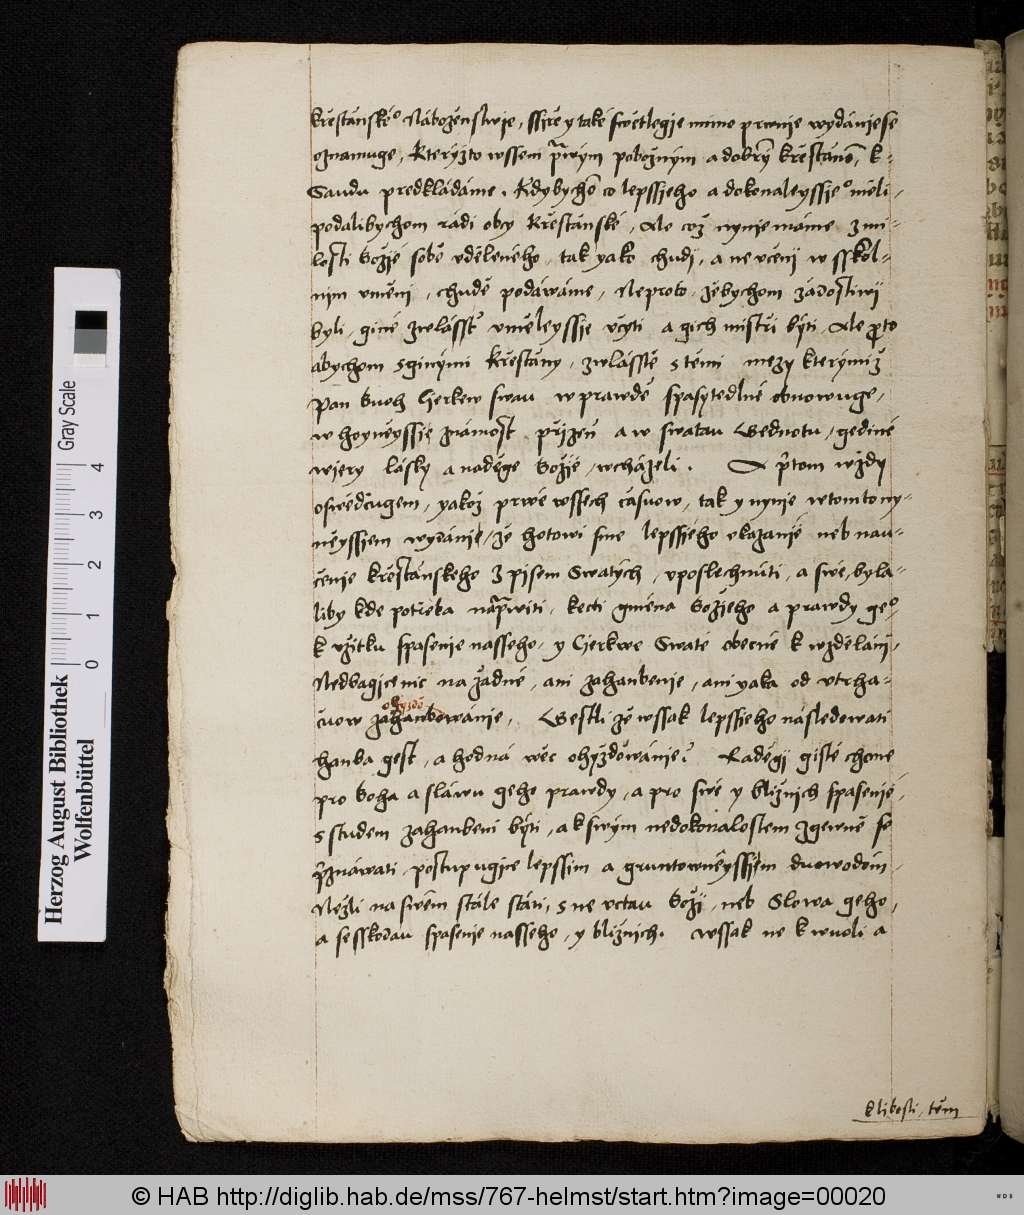 křestánskéº Náboženstwie, ssíře y také swětlegie mimo prwnie wydánie se
oznamuge, Kterýžto wssem prawým pobožným a dobrým křestánom, k-
Saudu predkládáme. Kdybychom co lepssieho a dokonaleyssieº měli,
podalibychom rádi obcy křestánské, Ale což nynie máme z mi-
losti Božie sobě vděleného, tak yako chudí, a ne včeni w sskol-
nim vměni, chudě podáwáme, Neproto žebychom žádostiwi
byli, giné zwlásst vměleyssie včyti a gich mistři býti, Ale proto
abychom s ginými křestány, zwlásstě s těmi mezy kterýmiž
Pan Buoh Cierkew swau w prawdě spasytedlně obnowuge,
w hoyněyssie známost přizeň a w swatau Gednotu, gediné
wiery lásky a naděge Božie, wcházeli. A přtom wždy
oswědčugem, yakož prwé wssech časuow, tak y nynie w tomto ny-
něyssiem wydánie, že hotowi sme lepssieho vkazanie neb nau-
čenie křestánskeho z pisem Swatých, vposlechnúti, a swé, byla-
liby kde potřeba naprawiti, kecti gména Božieho a prawdy geº
k vžitku spasenie nasseho, y Cierkwe Swaté obecné k wzdělání,
Nedbagice nic na žádné, ani zahanbenie, ani yaka od vtrha-
čuow zahanbowánie, Gestli že wssak lepssieho následowati
hanba gest, a hodná wěc ohyzdowánie? Raděgi gistě chcme
pro Boha a sláwu geho prawdy, a pro swé y bližnich spasenie,
s studem zahanbeni býti, a k swým nedokonalostem zgewně se
přiznáwati, postupugice lepssim a gruntowněyssiem duowodóm,
Nežli na swém stále státi, s ne vctau Boži, neb Slowa geho,
a se sskodau spasenie nasseho, y bližnich. Wssak ne k wuoli a
k libosti, těm
Herzog August Bibliothek
Wolfenbüttel
0 1 2 3 4
Gray Scale
© HAB http://diglib.hab.de/mss/767-helmst/start.htm?image=00020